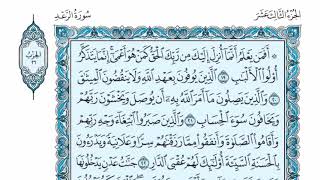 الجُزْءُ الثَّالِثَ عَشَرَ
سُورَةُ الرَّعْدِ
۞ أَفَمَن يَعْلَمُ أَنَّمَآ أُنزِلَ إِلَيْكَ مِن رَّبِّكَ ٱلْحَقُّ كَمَنْ هُوَ أَعْمَىٰٓ إِنَّمَا يَتَذَكَّرُ
أُو۟لُوا۟ ٱلْأَلْبَٰبِ ١٩ ٱلَّذِينَ يُوفُونَ بِعَهْدِ ٱللَّهِ وَلَا يَنقُضُونَ ٱلْمِيثَٰقَ
٢٠ وَٱلَّذِينَ يَصِلُونَ مَآ أَمَرَ ٱللَّهُ بِهِۦٓ أَن يُوصَلَ وَيَخْشَوْنَ رَبَّهُمْ
وَيَخَافُونَ سُوٓءَ ٱلْحِسَابِ ٢١ وَٱلَّذِينَ صَبَرُوا۟ ٱبْتِغَآءَ وَجْهِ رَبِّهِمْ
وَأَقَامُوا۟ ٱلصَّلَوٰةَ وَأَنفَقُوا۟ مِمَّا رَزَقْنَٰهُمْ سِرًّا وَعَلَانِيَةً وَيَدْرَءُونَ
بِٱلْحَسَنَةِ ٱلسَّيِّئَةَ أُو۟لَٰٓئِكَ لَهُمْ عُقْبَى ٱلدَّارِ ٢٢ جَنَّٰتُ عَدْنٍ يَدْخُلُونَهَا
الحزب
٢٦